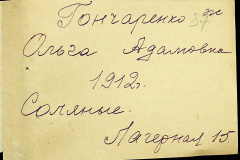 Гончаренко
Ольга Адамовна
1912г.
Соляные.
Лагерная 15.